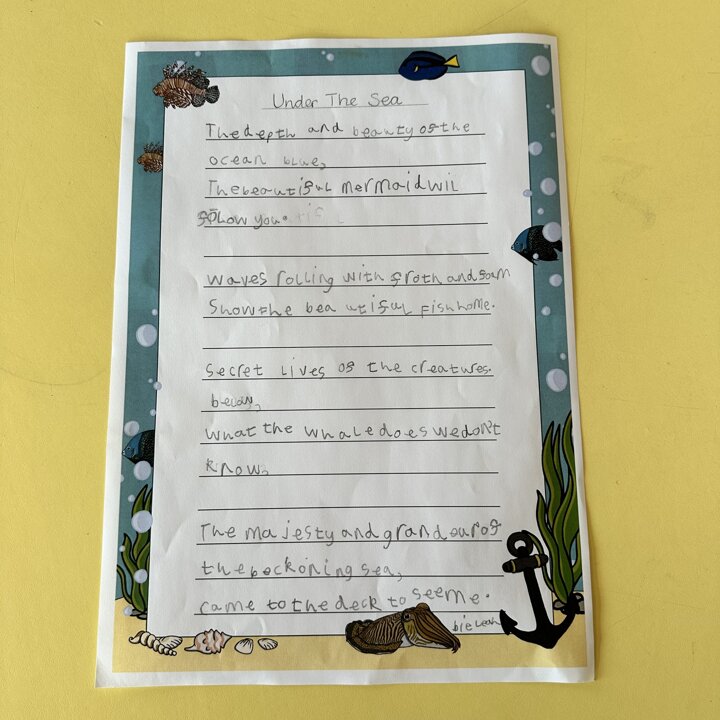 Under The Sea
The depth and beauty of the
ocean blue,
The beautiful mermaid wil
follow you.
waves rolling with froth and foam
Show the beautiful fish home.
Secret lives of the creatures.
below,
What the whale does we dont
know.
The majesty and grandour of
the beckoning sea,
came to the deck to see me.
bie Leah